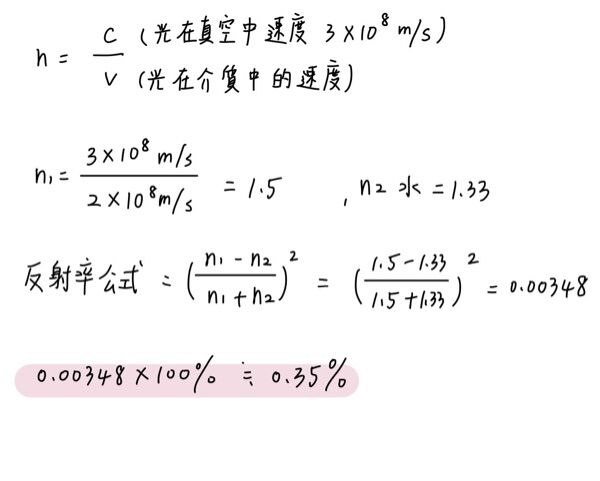 n = C/V (光在真空中速度 3×10⁸ m/s) (光在介質中的速度)
n₁ = 3×10⁸ m/s / 2×10⁸ m/s = 1.5 , n₂ 水 = 1.33
反射率公式 = ((n₁ - n₂)/(n₁ + n₂))² = ((1.5-1.33)/(1.5+1.33))² = 0.00348
0.00348 × 100% ≒ 0.35%